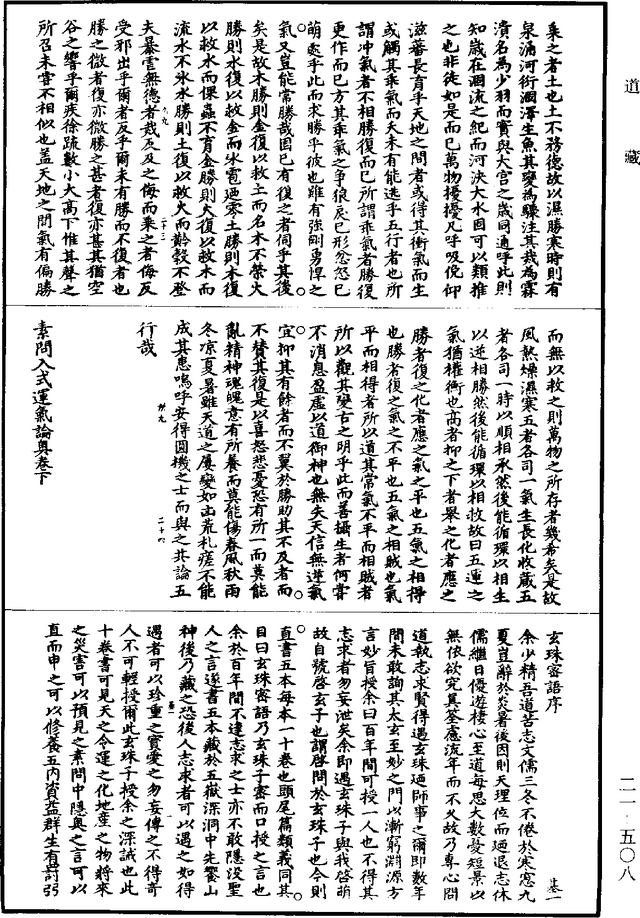 道藏
乘之者土也土不務德故以濕勝寒時則有
泉涌河衍涸澤生魚其變為驟注其災為霖
潰名為少羽而實與大宮之歲同通乎此則
知歲在涸流之紀而河決大水固可以類推
之也非徒如是而已萬物擾擾凡呼吸俛仰
滋蕃長育乎天地之間者或得其衝氣而生
或觸其乖氣而夭未有能逃乎五行者也所
謂冲氣者不相勝復而已所謂乖氣者勝復
更作而已方其乖氣之爭狼戾已形忿怒已
萌處乎此而求勝乎彼也雖有強剛勇悍之
氣又豈能常勝哉固已有復之者伺乎其後
矣是故木勝則金復以救土而名木不榮火
勝則水復以救金而氷雹廼零土勝則木復
以救水而倮蟲不育金勝則火復以救木而
流水不氷水勝則土復以救火而黅穀不登
夫暴虐無德者災反及之侮而乘之者侮反
受邪出乎爾者反乎爾未有勝而不復者也
勝之微者復亦微勝之甚者復亦甚其猶空
谷之響乎爾疾徐疏數小大高下惟其聲之
所召未甞不相似也蓋天地之間氣有偏勝
而無以救之則萬物之所存者幾希矣是故
風熱燥濕寒五者各司一氣生長化收藏五
者各司一時以順相承然後能循環以相生
以逆相勝然後能循環以相救故曰五運之
氣猶權衡也高者抑之下者舉之化者應之
勝者復之化者應之氣之平也五氣之相得
也勝者復之氣之不平也五氣之相賊也氣
平而相得者所以道其常氣不平而相賊者
所以觀其變古之明乎此而善攝生者何甞
不消息盈虛以道御神也無失天信無逆氣
宜抑其有餘者而不翼於勝助其不及者而
不賛其復是以喜怒悲憂恐有所一而莫能
亂精神魂魄意有所養而莫能傷春風秋雨
冬凉夏暑雖天道之屢變如凶荒札瘥不能
成其患嗚呼安得圓機之士而與之共論五
行哉
素問入式運氣論奧卷下
玄珠密語序
余少精吾道苦志文儒三冬不倦於寒窓九
夏豈辭於炎暑後因則天理位而廼退志休
儒繼日優遊棲心至道每思大數憂短景以
無依欲究真筌慮流年而不久故乃專心問
道執志求賢得遇玄珠廼師事之爾即數年
間未敢詢其太玄至妙之門以漸窮淵源方
言妙旨授余曰百年間可授一人也不得其
志求者勿妄泄矣余即遇玄珠子與我啓萌
故自號啓玄子也謂啓問於玄珠子也今則
直書五本每本一十卷也頭尾篇類義同其
目曰玄珠密語乃玄珠子密而口授之言也
余於百年間不逢志求之士亦不敢隱沒聖
人之言遂書五本藏於五嶽深洞中先饗山
神後乃藏之恐後人志求者可以遇之如得
遇者可以珍重之寶愛之勿妄傳之不得奇
人不可輕授爾此玄珠子授余之深誡也此
十卷書可見天之令運之化地產之物將來
之災害可以預見之素問中隱奥之言可以
直而申之可以修養五內資益群生有罸弱
二一·五〇八